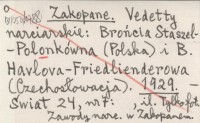 Zakopane. Vedetty
narciarskie: Brońcia Staszel-
-Polonkówna (Polska) i B.
Havlova-Friedlienderowa
(Czechosłowacja). 1929
Świat 24, nr 7: , il. Tylko fot.
Zawody narc. w Zakopanem.